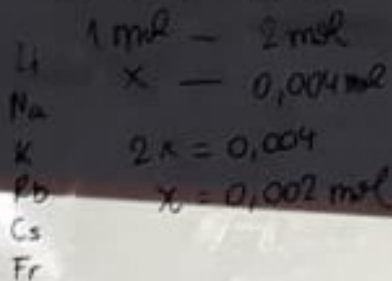 1 mol — 2 mol
Li
x — 0,004 mol
Na
K
2x = 0,004
Rb
x = 0,002 mol
Cs
Fr